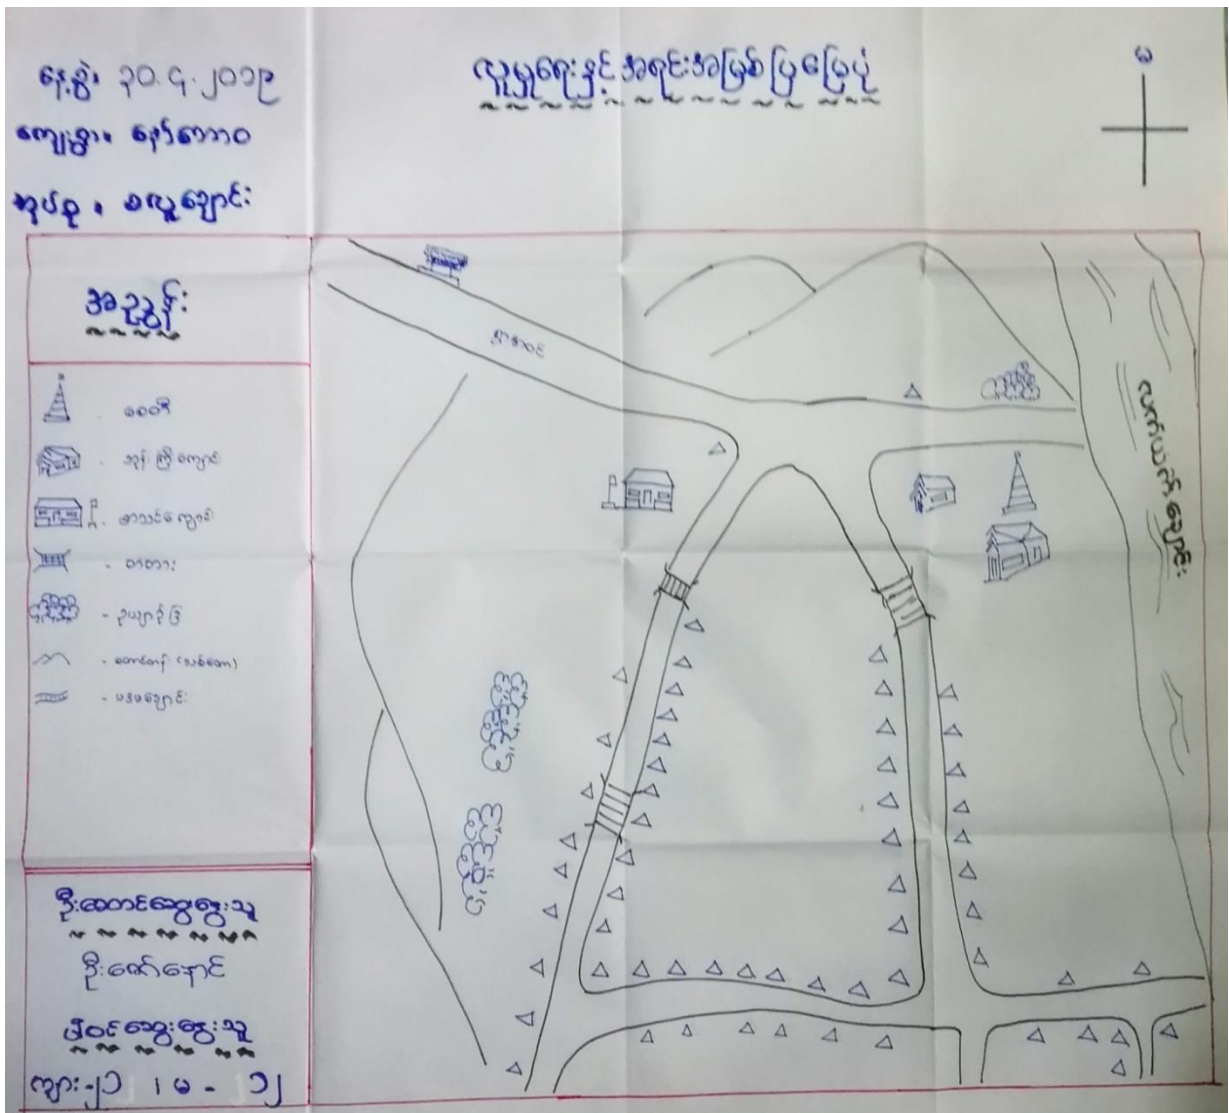 နေ့စွဲ၊ ၃၀.၄.၂၀၁၉
ကျေးရွာ၊ နော်ဘောဝ
အုပ်စု ၊ မလူချောင်း
လူမှုရေးနှင့် အရင်းအမြစ်ပြ မြေပုံ
မ
အညွှန်း
စေတီ
ဘုန်းကြီးကျောင်း
စာသင်ကျောင်း
တံတား
ဥယျာဉ်ခြံ
တောင်တန်း (သစ်တော)
ရွာအဝင်
ဦးဆောင်ဆွေးနွေးသူ
ဦးဇော်နောင်
ပါဝင်ဆွေးနွေးသူ
ကျား-၂၁ ၊ မ - ၁၂